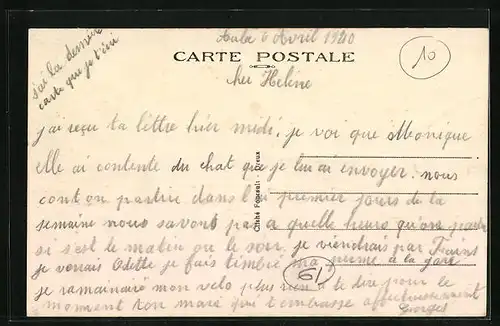 Aula 6 Avril 1940
CARTE POSTALE
10
j'ai la dernière
carte que je t'écri
Cher Helène
j'ai reçu ta lettre hier midi, je voi que Monique
elle ai contente du chat que je lui ai envoyer. nous
cont on partire dans les premier jours de la
semaine nous savont pas a quelle heure qu'on parte
si s'est le matin ou le soir. je viendrais par Train
je vouais Odette je fais timbré ma perme à la gare
je ramainaire mon velo plus rien à te dire pour le
moment ton mari qui t'embrasse affectueusement
Georges
61
Cliché Foucault Dreux